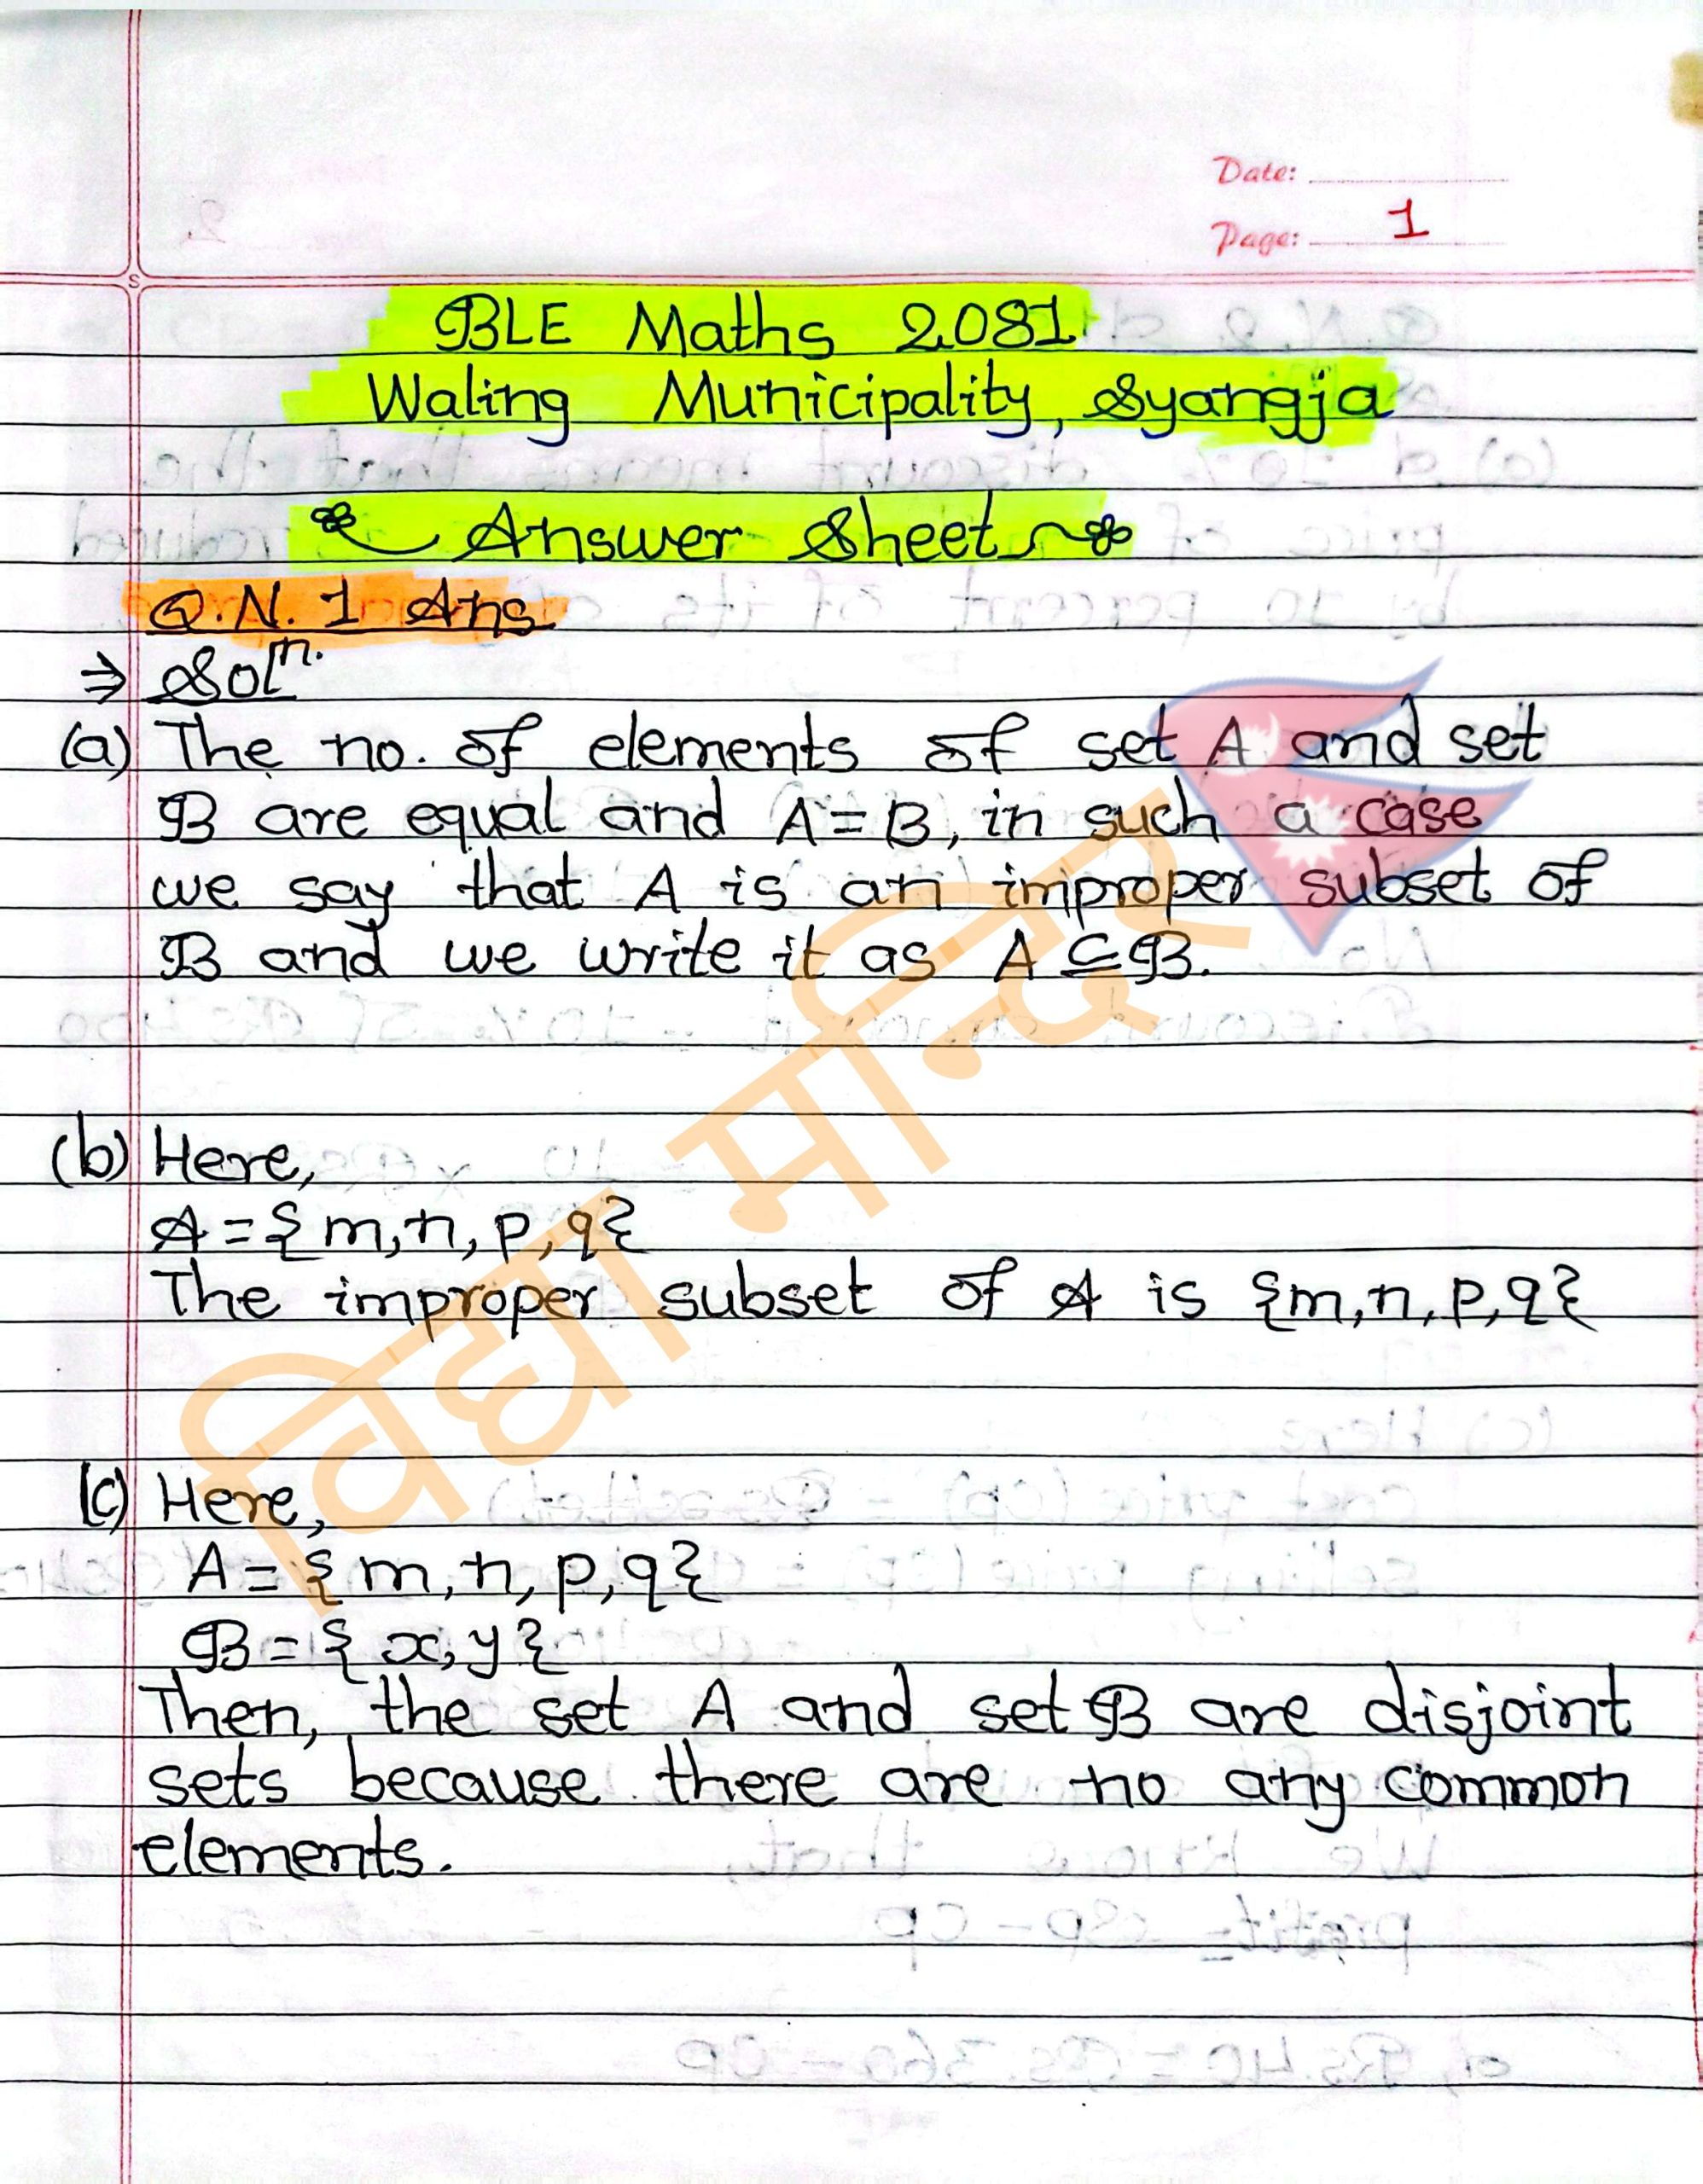 Date:
Page: 1
BLE Maths 2081
Waling Municipality, Syangja
Answer Sheet
Q.N. 1 Ans
⇒ Solⁿ.
(a) The no. of elements of set A and set
B are equal and A = B, in such a case
we say that A is an improper subset of
B and we write it as A ⊆ B.
(b) Here,
A = {m, n, p, q}
The improper subset of A is {m, n, p, q}
(c) Here,
A = {m, n, p, q}
B = {x, y}
Then, the set A and set B are disjoint
sets because there are no any common
elements.
विद्या मन्दिर